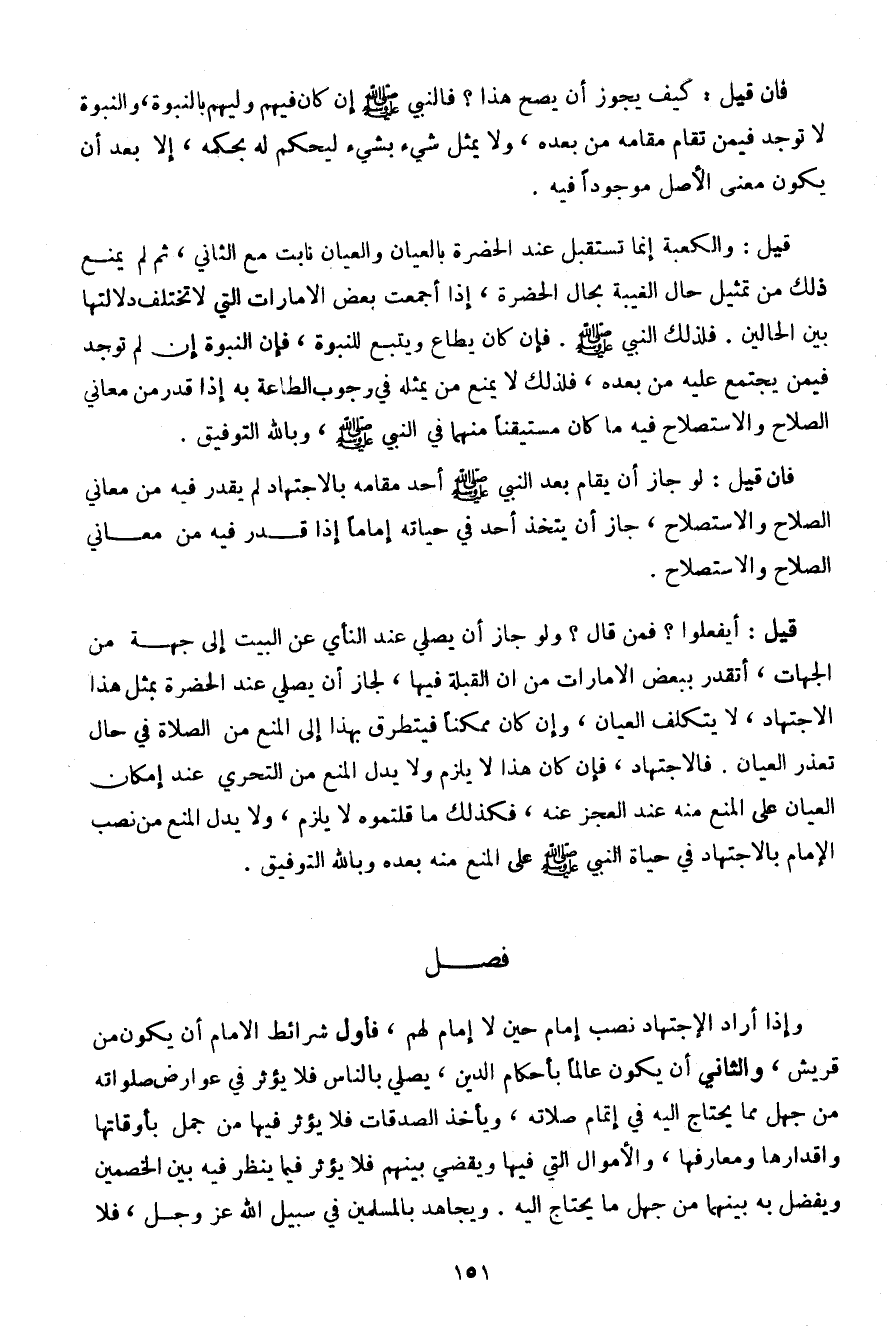 فان قيل : كيف يجوز أن يصح هذا ؟ فالنبي ﷺ إن كان فيهم وليهم بالنبوة ، والنبوة
لا توجد فيمن تقام مقامه من بعده ، ولا يمثل شيء بشيء ليحكم له بحكمه ، إلا بعد أن
يكون معنى الأصل موجوداً فيه .
قيل : والكعبة إنما تستقبل عند الحضرة بالعيان والعيان نابت مع الثاني ، ثم لم يمنـع
ذلك من تمثيل حال الغيبة بحال الحضرة ، إذا أجمعت بعض الامارات التي لا تختلف دلالتها
بين الحالين . فلذلك النبي ﷺ . فإن كان يطاع ويتبع للنبوة ، فإن النبوة إن لم توجد
فيمن يجتمع عليه من بعده ، فلذلك لا يمنع من يمثله في رجوب الطاعة به إذا قدر من معاني
الصلاح والاستصلاح فيه ما كان مستيقناً منهما في النبي ﷺ ، وبالله التوفيق .
فان قيل : لو جاز أن يقام بعد النبي ﷺ أحد مقامه بالاجتهاد لم يقدر فيه من معاني
الصلاح والاستصلاح ، جاز أن يتخذ أحد في حياته إماماً إذا قـدر فيه من معـاني
الصلاح والاستصلاح .
قيل : أيفعلوا ؟ فمن قال ؟ ولو جاز أن يصلي عند النأي عن البيت إلى جهـة من
الجهات ، أتقدر ببعض الامارات من ان القبلة فيها ، لجاز أن يصلي عند الحضرة بمثل هذا
الاجتهاد ، لا يتكلف العيان ، وإن كان ممكناً فيتطرق بهذا إلى المنع من الصلاة في حال
تعذر العيان . فالاجتهاد ، فإن كان هذا لا يلزم ولا يدل المنع من التحري عند إمكان
العيان على المنع منه عند العجز عنه ، فكذلك ما قلتموه لا يلزم ، ولا يدل المنع من نصب
الإمام بالاجتهاد في حياة النبي ﷺ على المنع منه بعده وبالله التوفيق .
فصـل
وإذا أراد الإجتهاد نصب إمام حين لا إمام لهم ، فأول شرائط الامام أن يكون من
قريش ، والثاني أن يكون عالماً بأحكام الدين ، يصلي بالناس فلا يؤثر في عوارض صلواته
من جهل مما يحتاج اليه في إتمام صلاته ، ويأخذ الصدقات فلا يؤثر فيها من جمل بأوقاتها
واقدارها ومعارفها ، والأموال التي فيها ويقضي بينهم فلا يؤثر فيما ينظر فيه بين الخصمين
ويفضل به بينهما من جهل ما يحتاج اليه . ويجاهد بالمسلمين في سبيل الله عز وجـل ، فلا
١٥١